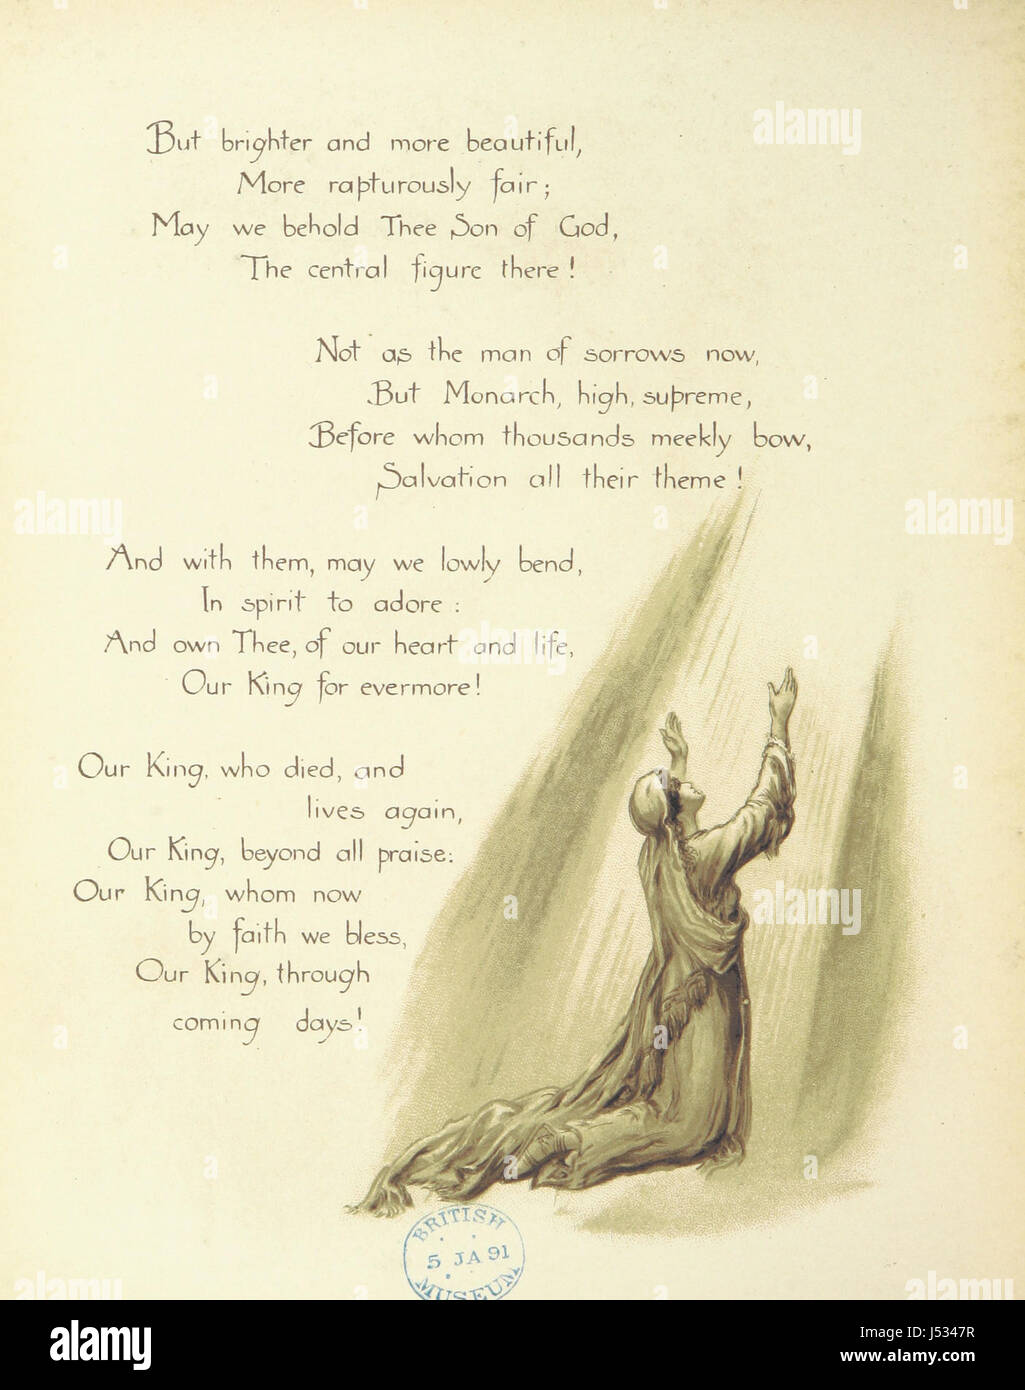 But brighter and more beautiful,
More rapturously fair;
May we behold Thee Son of God,
The central figure there!
Not as the man of sorrows now,
But Monarch, high, supreme,
Before whom thousands meekly bow,
Salvation all their theme!
And with them, may we lowly bend,
In spirit to adore:
And own Thee, of our heart and life,
Our King for evermore!
Our King, who died, and
lives again,
Our King, beyond all praise:
Our King, whom now
by faith we bless,
Our King, through
coming days!
BRITISH
5 JA 91
MUSEUM
alamy
Image ID: J5347R
www.alamy.com